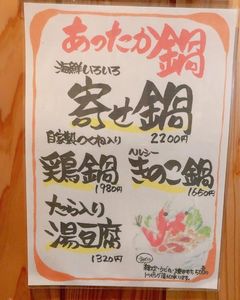 あったか鍋
海鮮いろいろ
寄せ鍋
2200円
自家製つくね入り
鶏鍋
1980円
ヘルシー
きのこ鍋
1650円
たら入り
湯豆腐
1320円